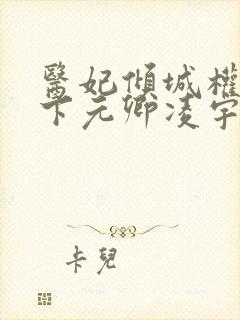 醫妃傾城權
下元卿凌宇
卡兒